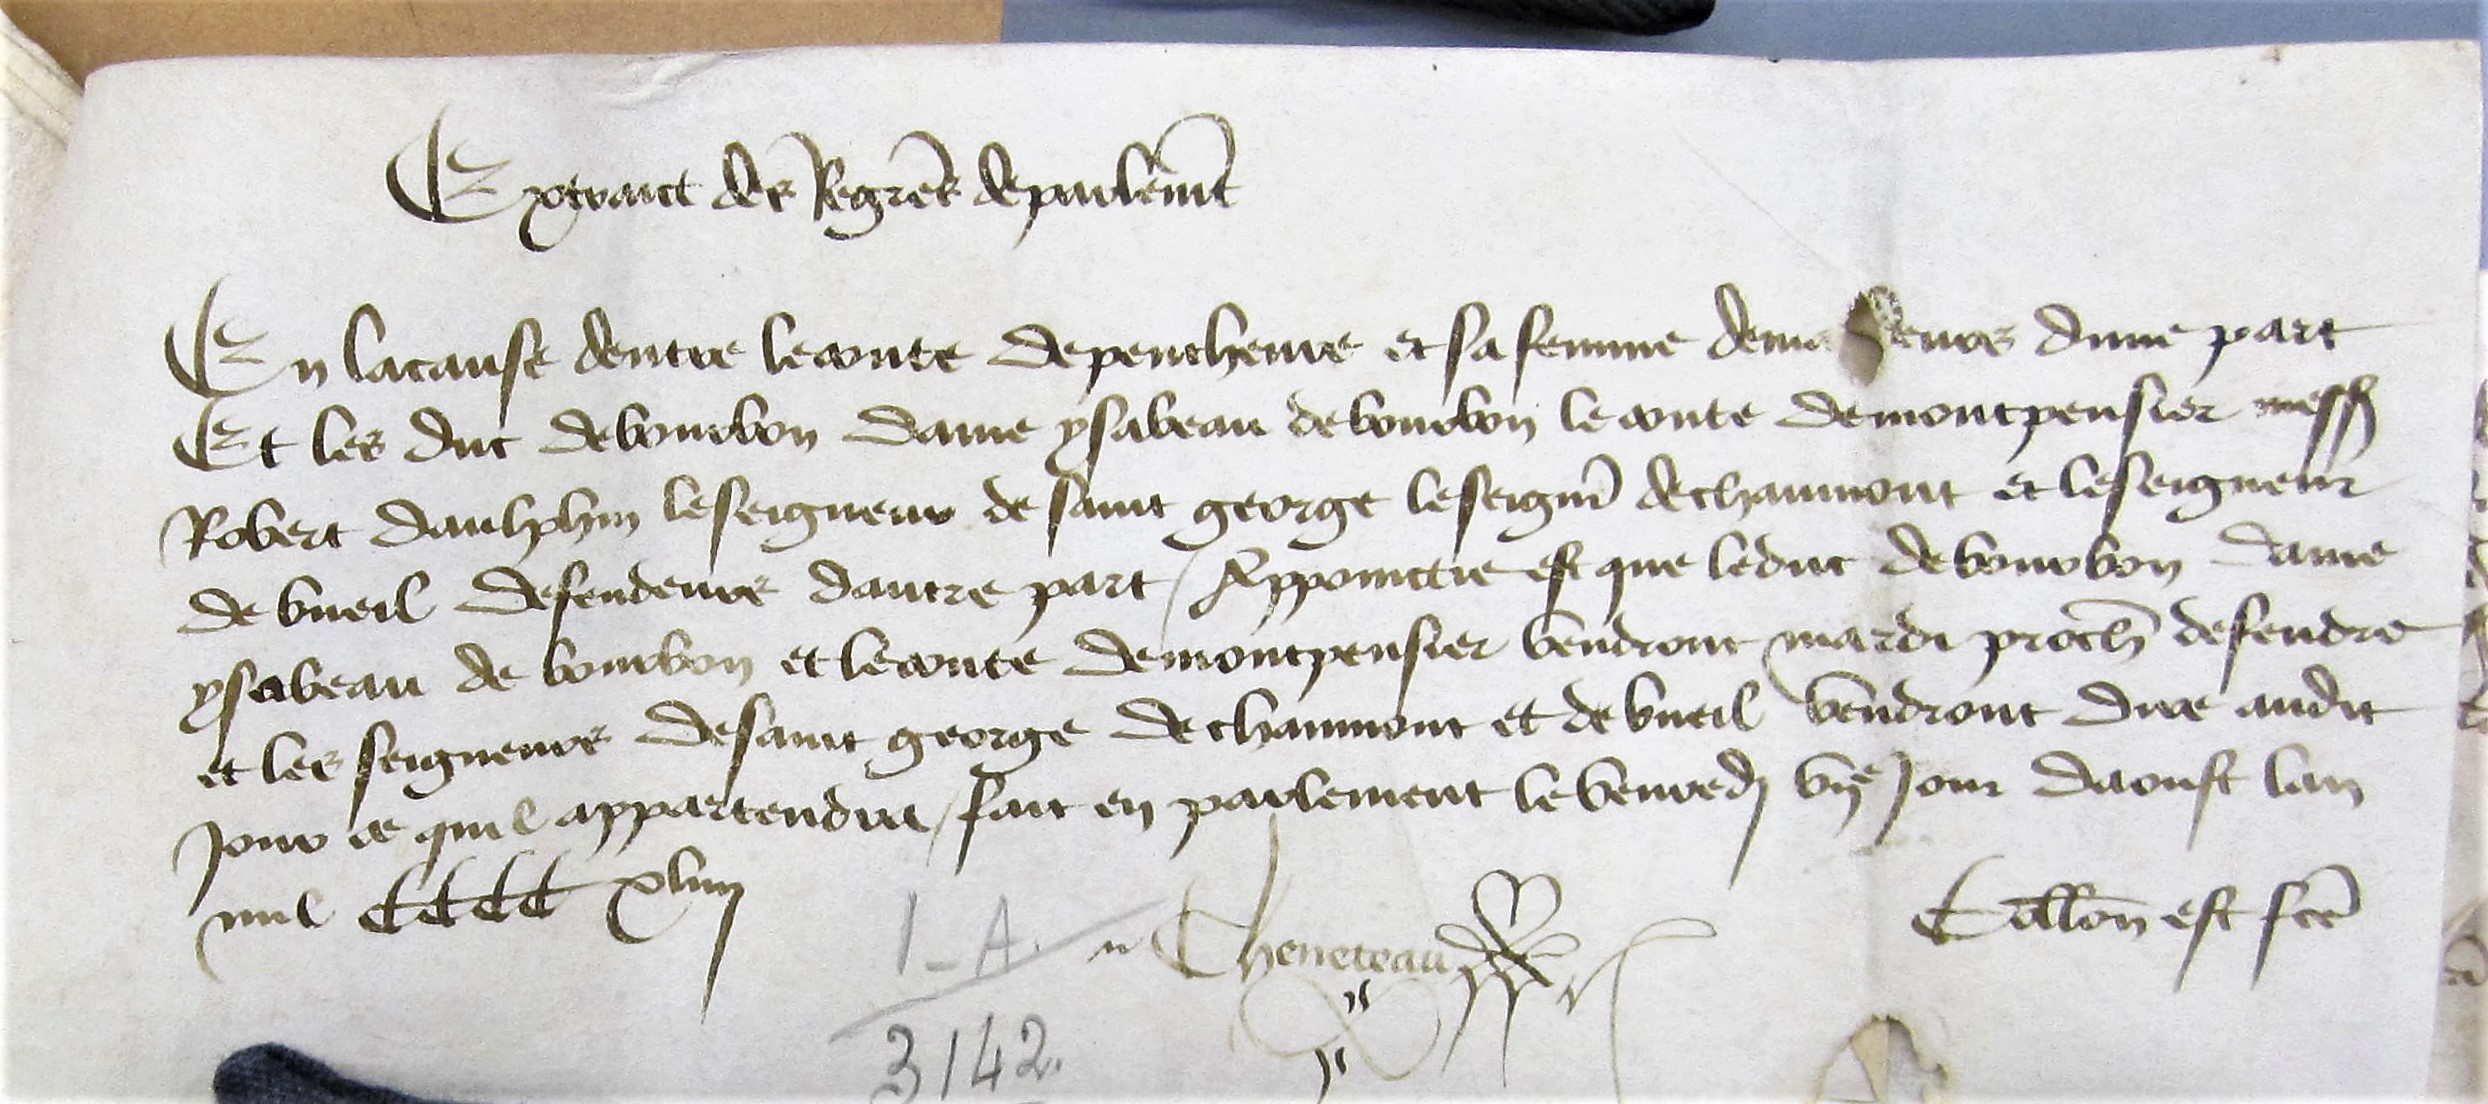 Extraict des Regrès de parlemt
En la cause dentre le conte de penthevre et sa femme dema eurs dune part
Et les duc de bourbon dame ysabeau de bourbon le conte de montpensier messe
Robert daulphin le seigneur de saint george le seignr de chaumont et le seigneur
de bueil defendeurs dautre part / Appoinctie est que le duc de bourbon dame
ysabeau de bourbon et le conte de montpensier vendront mardi proch defendre
et les seigneurs de saint george de chaumont et de bueil vendront dire audit
Jour ce quil appartendra / fait en parlement le vendredj vije Jour daoust lan
mil CCCC xliiij
Cheneteau
Collon est fce
1-A.
3142.